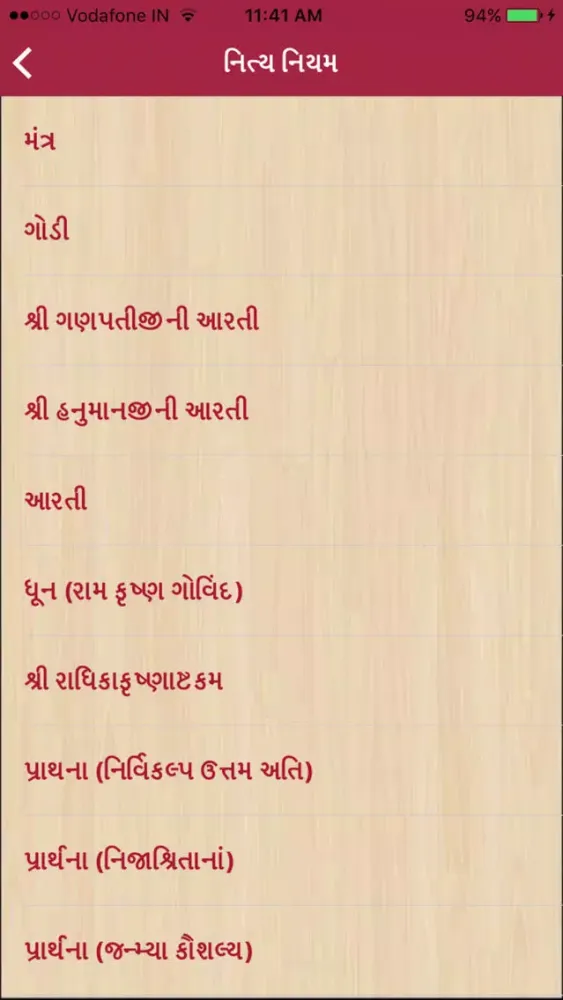 Vodafone IN 11:41 AM 94%
નિત્ય નિયમ
મંત્ર
ગોડી
શ્રી ગણપતીજીની આરતી
શ્રી હનુમાનજીની આરતી
આરતી
ધૂન (રામ કૃષ્ણ ગોવિંદ)
શ્રી રાધિકાકૃષ્ણાષ્ટકમ
પ્રાથના (નિર્વિકલ્પ ઉત્તમ અતિ)
પ્રાર્થના (નિજાશ્રિતાનાં)
પ્રાર્થના (જન્મ્યા કૌશલ્ય)